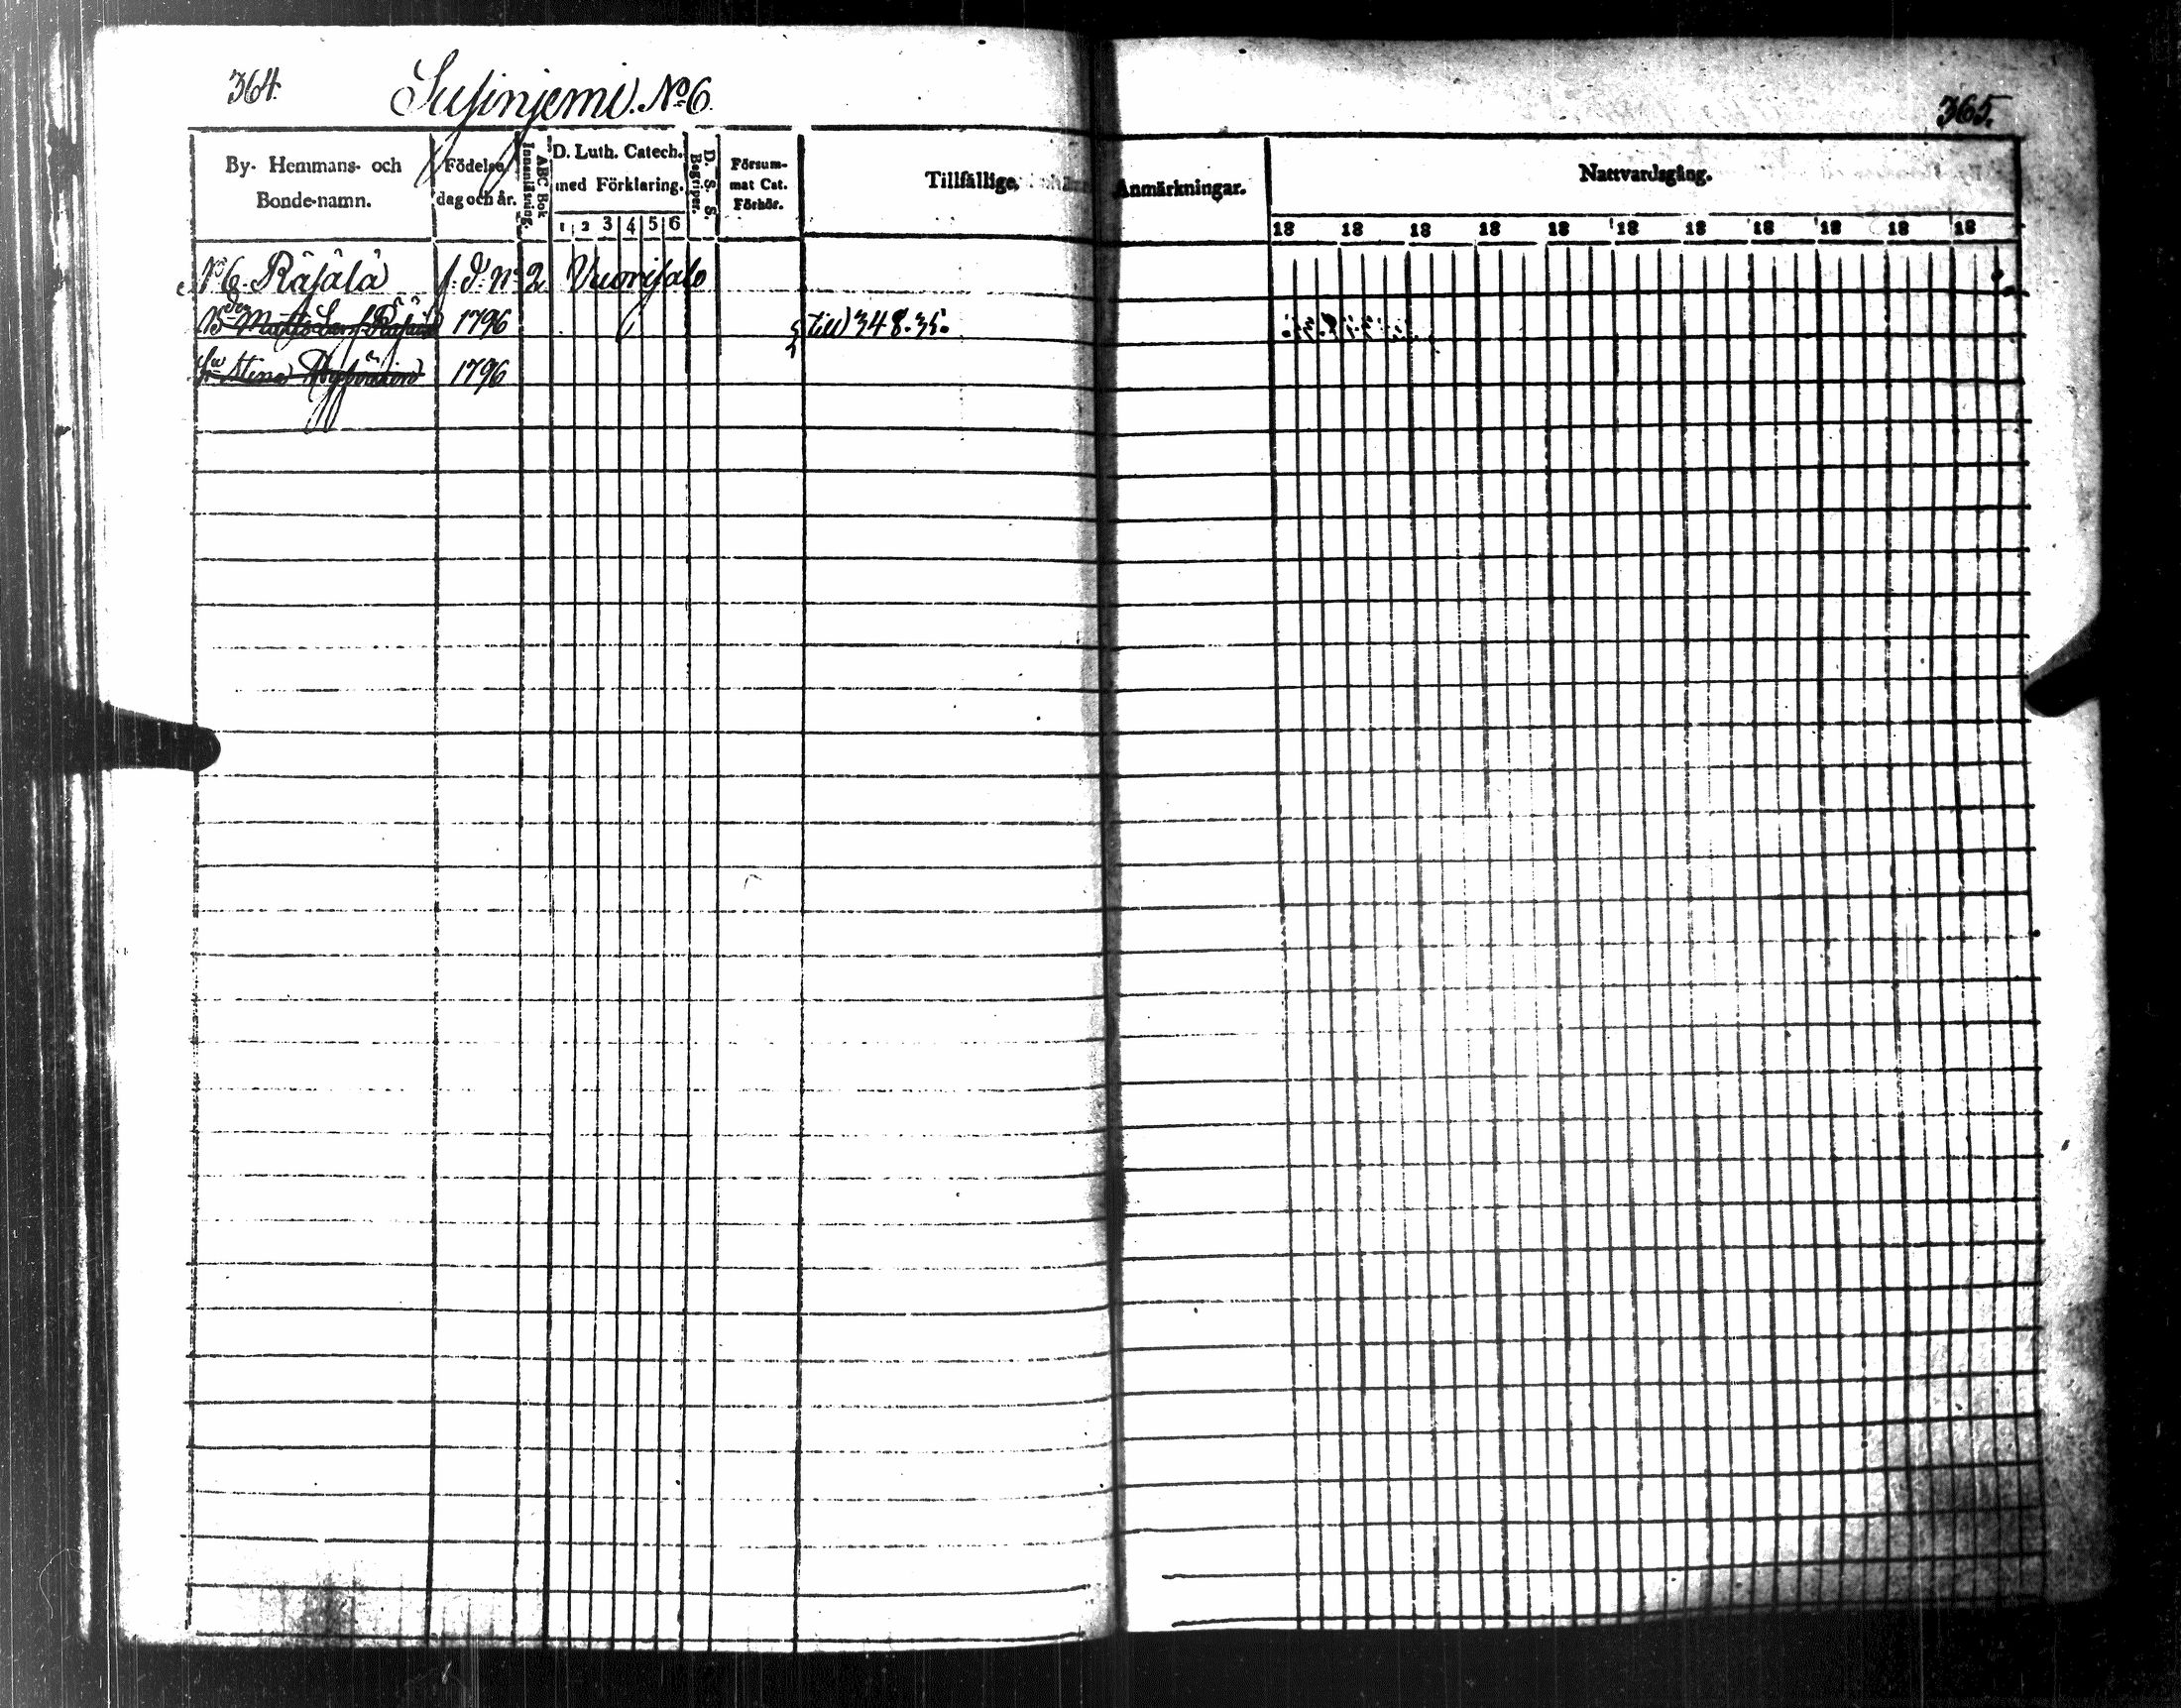 364.
Susinjemi. No 6.
365.
By- Hemmans- och
Bonde-namn.
Födelse
dag och år.
ABC Bok
Innanläsning.
D. Luth. Catech.
med Förklaring.
1 2 3 4 5 6
D. S. S.
Begriper.
Försum-
mat Cat.
Förhör.
Tillfällige, Anmärkningar.
Nattvardsgång.
18 18 18 18 18 18 18 18 18 18 18
No 6. Räsälä f. d. No 2 Vuorisalo
1796 till 348. 35.
Stina 1796